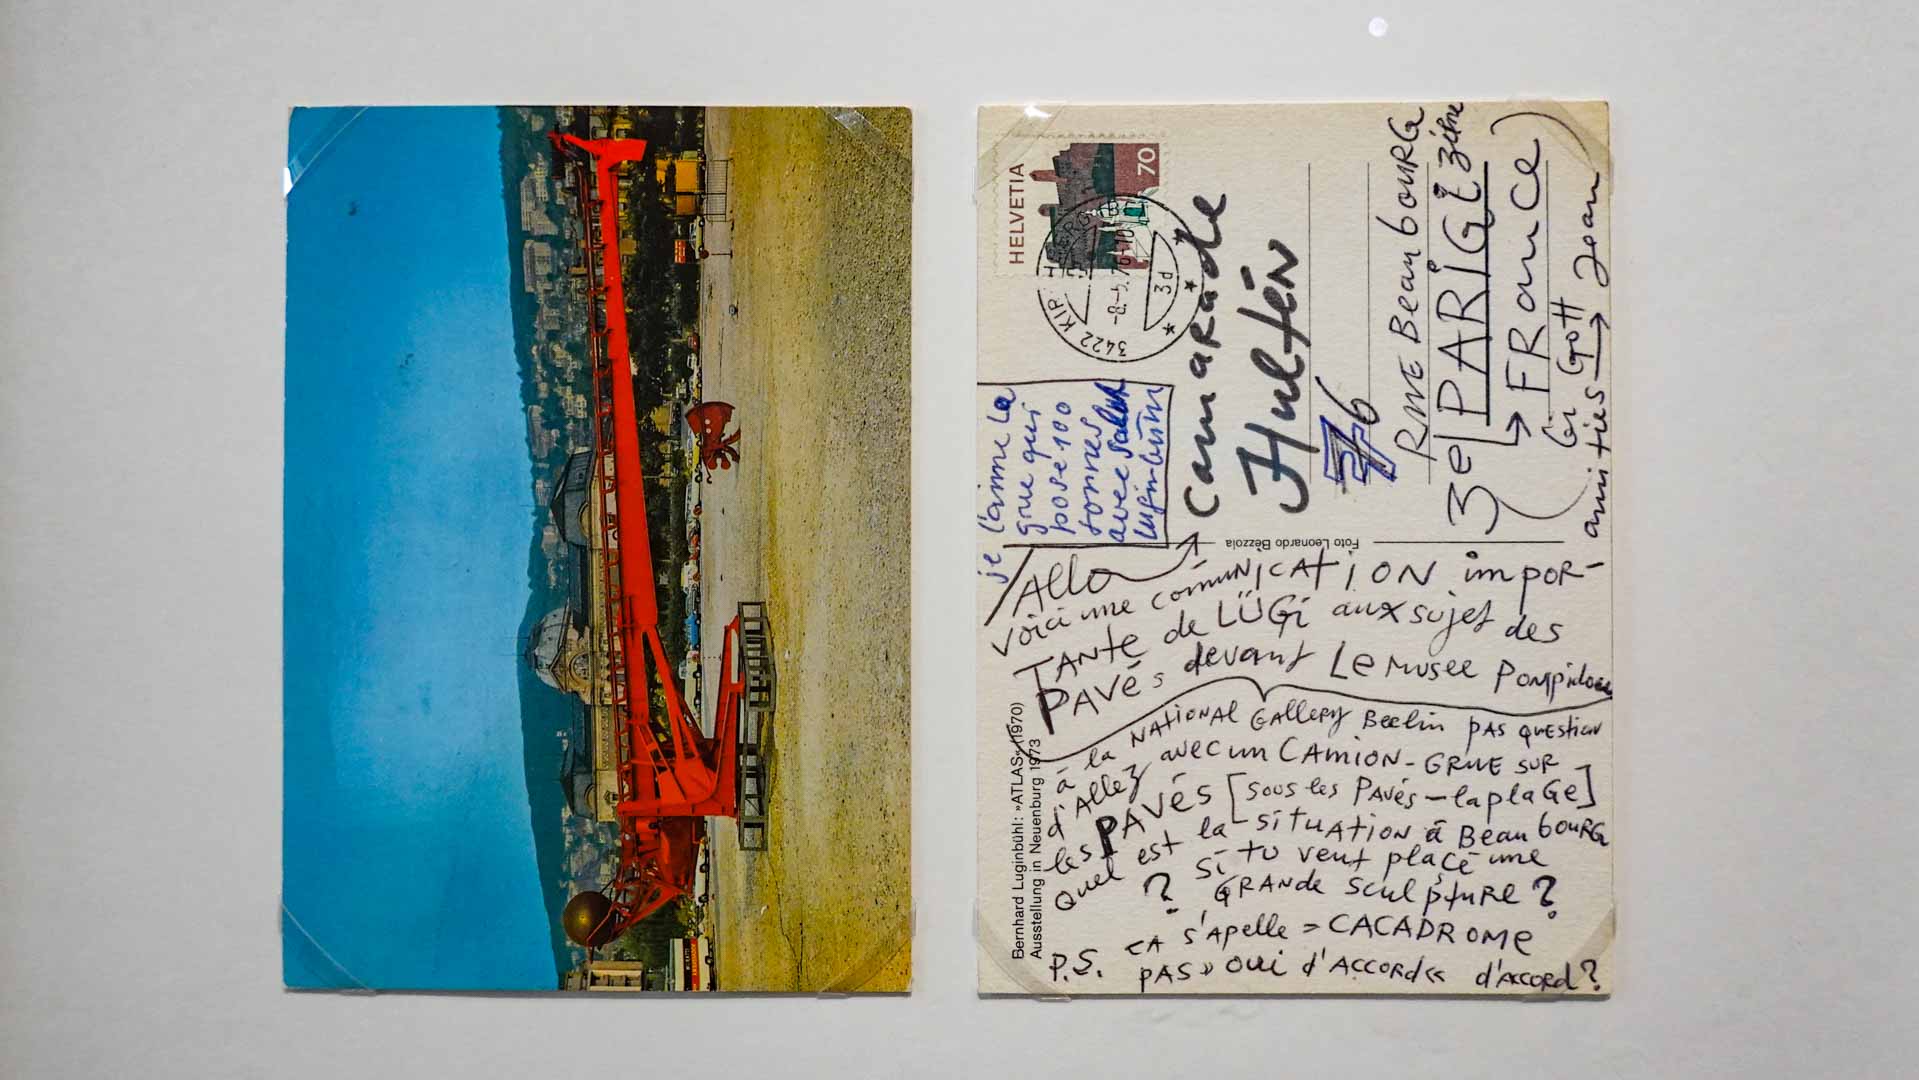 Bernhard Luginbühl: »ATLAS« (1970)
Ausstellung in Neuenburg 1973
Foto Leonardo Bèzzola
HELVETIA
70
3422 KIR
3d
je l'aime la
grue qui
pose 100
tonnes
avec salut
Camarade
Hultén
RUE Beaubourg
3e PARiGi
FRance
Gott
amitiés → Jean
Allo
voici une comuNiCATiON impor-
TANTe de LÜGi aux sujet des
PAVés devant Le Musee Pompidou
à la NATiONAL GAllery Berlin pas question
d'Allez avec un CAMiON-GRUE SUR
les PAVés [sous les Pavés-la plaGe]
quel est la situation à BeaubouRG
? si tu veut placé une
GRANde sculpture?
P.S. ça s'Apelle = CACADROMe
PAS » oui d'Accord « d'Accord?